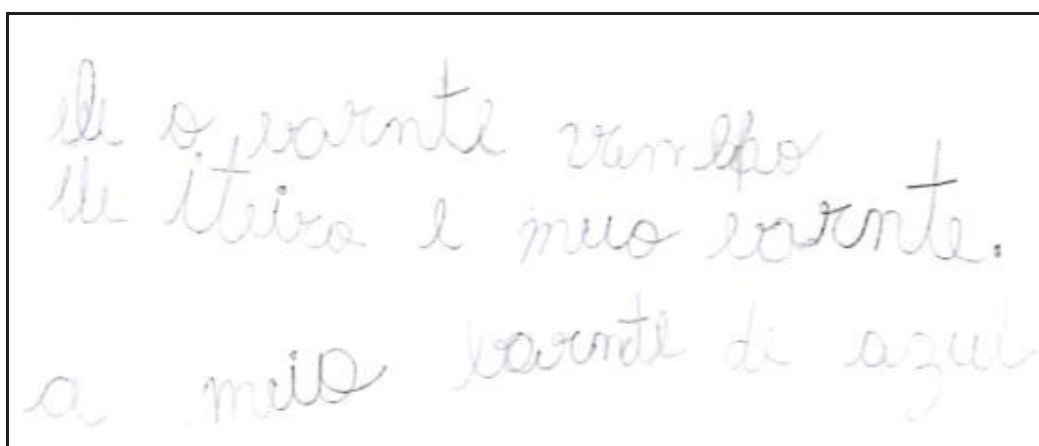 ele o barnte vemelho
ele iteiro e muo barnte.
a meio barnte de azul